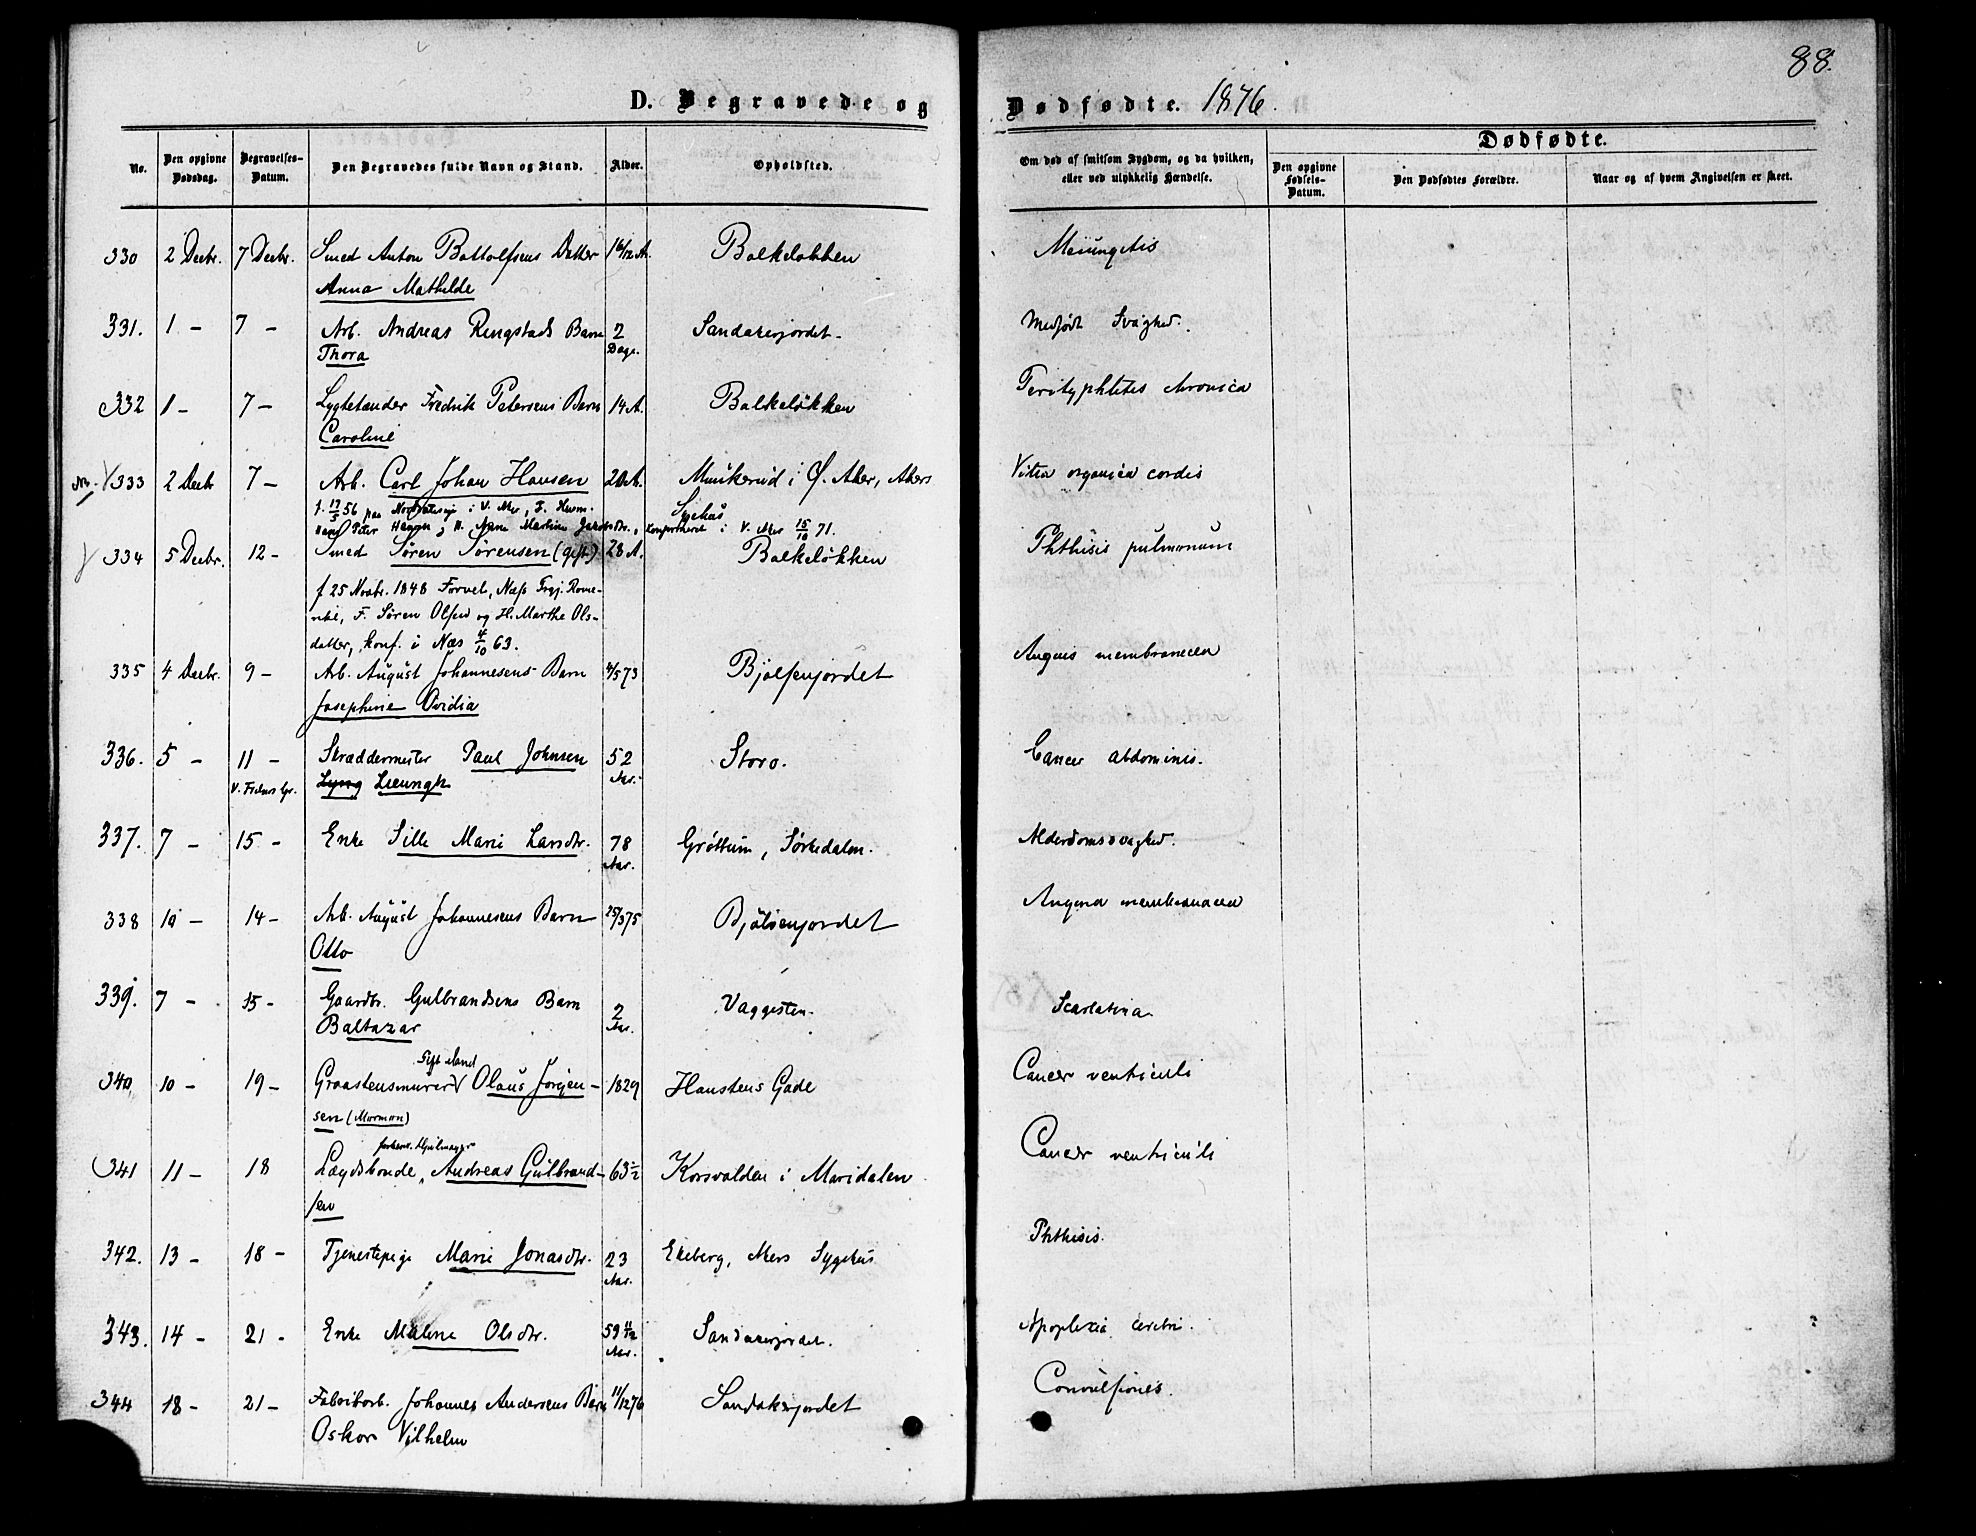 88.
D. Begravede og Dødfødte. 1876.
No. Den opgivne Dødsdag. Begravelses-Datum. Den Begravedes fulde Navn og Stand. Alder. Opholdsted. Om død af smitsom Sygdom, og da hvilken, eller ved ulykkelig Hændelse.
Dødfødte.
Den opgivne Fødsels-Datum. Den Dødfødtes Forældre. Naar og af hvem Angivelsen er skeet.
330 2 Decbr. 7 Decbr. Smed Anton Bottolfsens Datter Balkeløkken
Anna Mathilde
331. 1 - 7 - Arb. Andreas Ringstads Barn 2 Sandakerjordet - Medfødt Svaghed.
Thora Dage.
332 1 - 7 - Lygtetænder Fredrik Petersens Barn 14 A. Balkeløkken
Caroline
333 2 Decbr 7 - Arb. Carl Johan Hansen 20 A. Munkerud i Ø. Aker, Akers Vitia organica cordis
Sygehus
f. 17/5 56 i V. Aker, F. Husm.
Hans Peter i V. Aker 15/10 71.
334 5 Decbr. 12 - Smed Søren Sørensen (gift) 28 A. Balkeløkken Phthisis pulmonum
f 25 Novbr. 1848 Næs Prgj. Rome-
rike, F. Søren Olsen og H. Marthe Ols-
datter, konf. i Næs 4/10 63.
335 4 Decbr. 9 - Arb. August Johannesens Barn 4/5 73 Bjølsenjordet Angina membranacea
Josephine Ovidia
336. 5 - 11 - Skræddermester Paul Johnsen 52 Storo. Cancer abdominis.
V. Frelsers Gr. Lyng Lieungh Aar.
337. 7 - 15 - Enke Sille Marie Larsdtr. 78 Grøttum, Sørkedalen. Alderdomssvaghed.
Aar.
338 10 - 14 - Arb. August Johannesens Barn 25/3 75 Bjølsenjordet Angina membranacea
Otto
339. 7 - 15 - Gaardbr. Gulbrandsens Barn 2 Vaggesten. Scarlatina
Baltazar Aar.
Gift Mand
340. 10 - 19 - Graastensmurer Olaus Jörgen- 1829 Hanstens Gade Cancer ventriculi
sen (Mormon)
341 11 - 18 Lægdsbonde, Andreas Gulbrand- 63 1/2 Korsvolden i Maridalen Cancer ventriculi
sen
342. 13 - 18 - Tjenestepige Marie Jonasdtr. 23 Ekeberg, Akers Sygehus Phthisis.
Aar.
343. 14 - 21 - Enke Malene Olsdtr. Sandakerjordet. Apoplexia cerebri.
Aar.
344 18 - 21 - Fabrikarb. Johannes Andersens Barn 11/12 76 Sandakerjordet Convulsiones.
Oskar Vilhelm